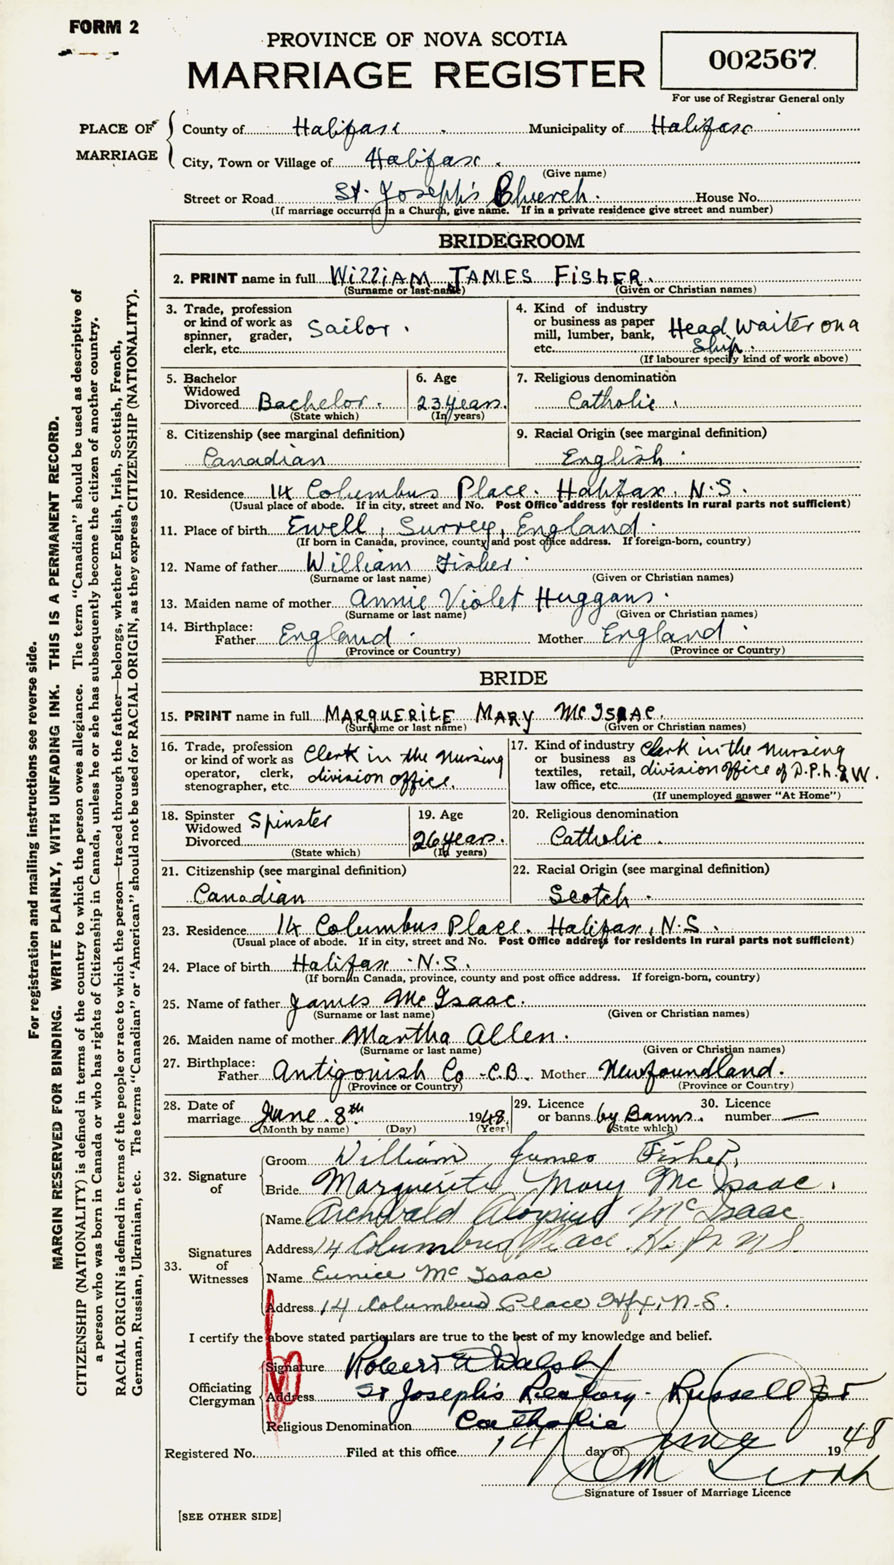 FORM 2
PROVINCE OF NOVA SCOTIA
MARRIAGE REGISTER
002567
For use of Registrar General only
PLACE OF MARRIAGE
County of Halifax Municipality of Halifax
City, Town or Village of Halifax.
(Give name)
Street or Road St. Joseph's Church. House No.
(If marriage occurred in a Church, give name. If in a private residence give street and number)
BRIDEGROOM
2. PRINT name in full WILLIAM JAMES FISHER.
(Surname or last name) (Given or Christian names)
3. Trade, profession or kind of work as spinner, grader, clerk, etc. Sailor.
4. Kind of industry or business as paper mill, lumber, bank, etc. Head Waiter on a Ship.
(If labourer specify kind of work above)
5. Bachelor Widowed Divorced Bachelor.
(State which)
6. Age 23 years.
(In years)
7. Religious denomination Catholic.
8. Citizenship (see marginal definition) Canadian
9. Racial Origin (see marginal definition) English.
10. Residence 14 Columbus Place. Halifax, N.S.
(Usual place of abode. If in city, street and No. Post Office address for residents in rural parts not sufficient)
11. Place of birth Ewell, Surrey, England.
(If born in Canada, province, county and post office address. If foreign-born, country)
12. Name of father William Fisher.
(Surname or last name) (Given or Christian names)
13. Maiden name of mother Annie Violet Huggans.
(Surname or last name) (Given or Christian names)
14. Birthplace: Father England. Mother England.
(Province or Country) (Province or Country)
BRIDE
15. PRINT name in full MARGUERITE MARY McISAAC.
(Surname or last name) (Given or Christian names)
16. Trade, profession or kind of work as operator, clerk, stenographer, etc. Clerk in the nursing division office.
17. Kind of industry or business as textiles, retail, law office, etc. Clerk in the nursing division office of D.P.h. & W.
(If unemployed answer "At Home")
18. Spinster Widowed Divorced Spinster
(State which)
19. Age 26 years.
(In years)
20. Religious denomination Catholic.
21. Citizenship (see marginal definition) Canadian
22. Racial Origin (see marginal definition) Scotch.
23. Residence 14 Columbus Place. Halifax, N.S.
(Usual place of abode. If in city, street and No. Post Office address for residents in rural parts not sufficient)
24. Place of birth Halifax N.S.
(If born in Canada, province, county and post office address. If foreign-born, country)
25. Name of father James McIsaac.
(Surname or last name) (Given or Christian names)
26. Maiden name of mother Martha Allen.
(Surname or last name) (Given or Christian names)
27. Birthplace: Father Antigonish Co - C.B. Mother Newfoundland.
(Province or Country) (Province or Country)
28. Date of marriage June 8th 1948.
(Month by name) (Day) (Year)
29. Licence or banns by Banns.
(State which)
30. Licence number —
32. Signature of
Groom William James Fisher.
Bride Marguerite Mary McIsaac.
33. Signatures of Witnesses
Name Archibald Aloysius McIsaac
Address 14 Columbus Place. Hfx NS.
Name Eunice McIsaac
Address 14 Columbus Place Hfx, N.S.
I certify the above stated particulars are true to the best of my knowledge and belief.
Officiating Clergyman
Signature Robert Walsh
Address St Joseph's Rectory - Russell St
Religious Denomination Catholic
Registered No. Filed at this office 14 day of June 1948
Signature of Issuer of Marriage Licence
[SEE OTHER SIDE]
For registration and mailing instructions see reverse side.
MARGIN RESERVED FOR BINDING. WRITE PLAINLY, WITH UNFADING INK. THIS IS A PERMANENT RECORD.
CITIZENSHIP (NATIONALITY) is defined in terms of the country to which the person owes allegiance. The term "Canadian" should be used as descriptive of
a person who was born in Canada or who has rights of Citizenship in Canada, unless he or she has subsequently become the citizen of another country.
RACIAL ORIGIN is defined in terms of the people or race to which the person—traced through the father—belongs, whether English, Irish, Scottish, French,
German, Russian, Ukrainian, etc. The terms "Canadian" or "American" should not be used for RACIAL ORIGIN, as they express CITIZENSHIP (NATIONALITY).